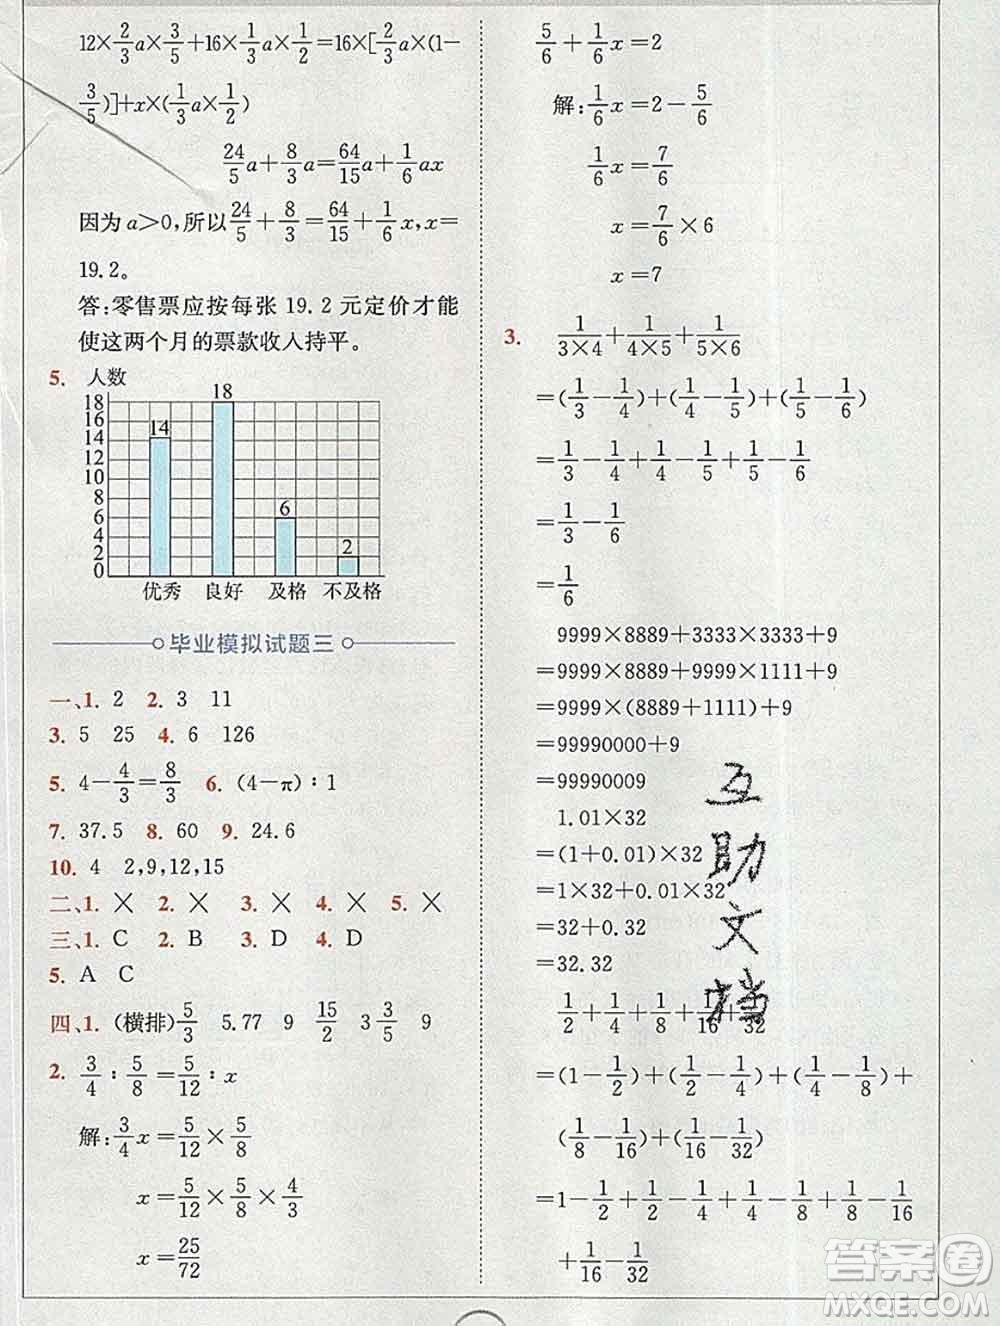 12×2/3a×3/5+16×1/3a×1/2=16×[2/3a×(1-
3/5)]+x×(1/3a×1/2)
24/5a+8/3a=64/15a+1/6ax
因为a>0,所以24/5+8/3=64/15+1/6x,x=
19.2。
答:零售票应按每张19.2元定价才能
使这两个月的票款收入持平。
5. 人数
18
16
14
12
10
8
6
4
2
0
14
18
6
2
优秀 良好 及格 不及格
毕业模拟试题三
一、1. 2 2. 3 11
3. 5 25 4. 6 126
5. 4-4/3=8/3 6. (4-π):1
7. 37.5 8. 60 9. 24.6
10. 4 2,9,12,15
二、1. × 2. × 3. × 4. × 5. ×
三、1. C 2. B 3. D 4. D
5. A C
四、1. (横排)5/3 5.77 9 15/2 3 3/5 9
2. 3/4:5/8=5/12:x
解:3/4x=5/12×5/8
x=5/12×5/8×4/3
x=25/72
5/6+1/6x=2
解:1/6x=2-5/6
1/6x=7/6
x=7/6×6
x=7
3. 1/(3×4)+1/(4×5)+1/(5×6)
=(1/3-1/4)+(1/4-1/5)+(1/5-1/6)
=1/3-1/4+1/4-1/5+1/5-1/6
=1/3-1/6
=1/6
9999×8889+3333×3333+9
=9999×8889+9999×1111+9
=9999×(8889+1111)+9
=99990000+9
=99990009
1.01×32
=(1+0.01)×32
=1×32+0.01×32
=32+0.32
=32.32
1/2+1/4+1/8+1/16+1/32
=(1-1/2)+(1/2-1/4)+(1/4-1/8)+
(1/8-1/16)+(1/16-1/32)
=1-1/2+1/2-1/4+1/4-1/8+1/8-1/16
+1/16-1/32
互助文档
答案圈
MXQE.COM